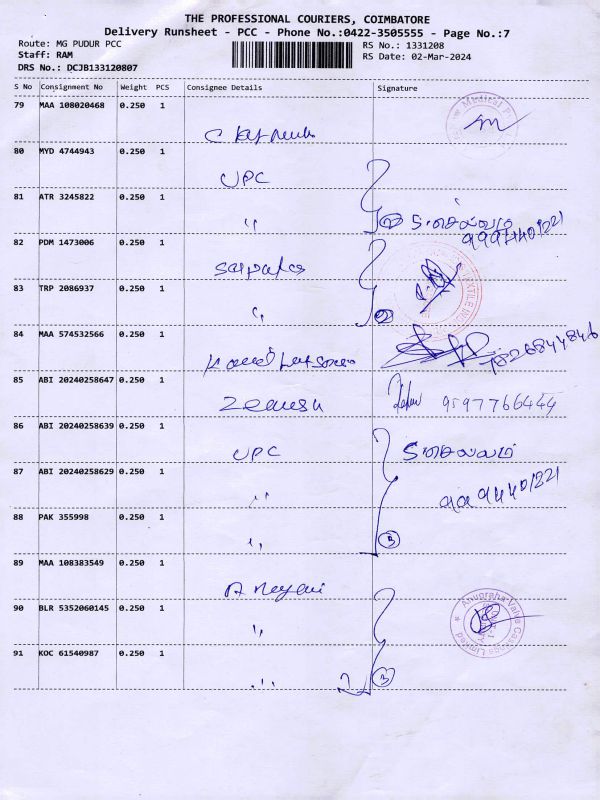 THE PROFESSIONAL COURIERS, COIMBATORE
Delivery Runsheet - PCC - Phone No.:0422-3505555 - Page No.:7
Route: MG PUDUR PCC
RS No.: 1331208
Staff: RAM
RS Date: 02-Mar-2024
DRS No.: DCJB133120807
S No Consignment No Weight PCS Consignee Details Signature
79 MAA 108020468 0.250 1
Medical
80 MYD 4744943 0.250 1 UPC
81 ATR 3245822 0.250 1 " 2 S.செல்வம்
9994401221
82 PDM 1473006 0.250 1
83 TRP 2086937 0.250 1 " 2
TEXTILE
84 MAA 574532566 0.250 1
7826844846
85 ABI 20240258647 0.250 1 9597766444
86 ABI 20240258639 0.250 1 UPC S.செல்வம்
87 ABI 20240258629 0.250 1 " 9994401221
88 PAK 355998 0.250 1 " 3
89 MAA 108383549 0.250 1
90 BLR 5352060145 0.250 1 "
Anugraha Valve Castings Limited
91 KOC 61540987 0.250 1 " 3